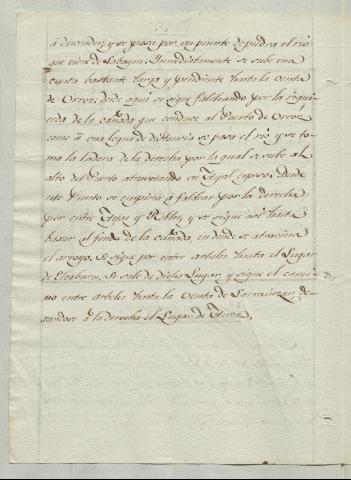 á decender, y se pasa por un puente de piedra el rio
que viene de Labayen. Inmediatamente se sube una
cuesta bastante larga y pendiente hasta la venta
de Orroz, desde aqui se sigue faldeando por la izqui-
erda de la cañada que conduce al Puerto de Orroz
como á una legua de distancia se pasa el rio, y se to-
ma la ladera de la derecha, por la qual se sube al
alto del Puerto atravesando un Ayal espeso. Desde
este Punto se empieza á faldear por la derecha
por entre Ayas y Robles, y se sigue asi hasta
baxar al fondo de la cañada, en donde se atraviesa
el arroyo. Se sigue por entre arboles hasta el Lugar
de Elzaburu, Se sale de dicho Lugar, y sigue el cami-
no entre arboles hasta la Venta de Larrainzar, de-
xandose á la derecha el Lugar de